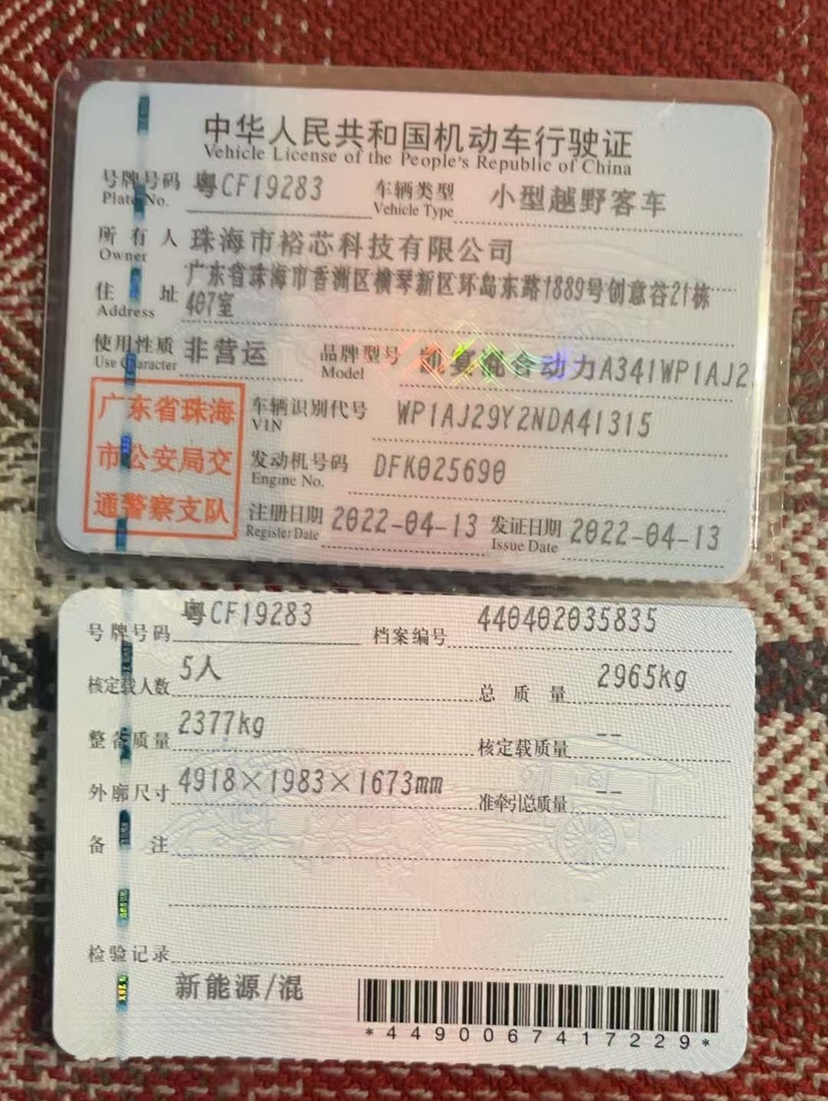 中华人民共和国机动车行驶证
Vehicle License of the People's Republic of China
号牌号码 粤CF19283 车辆类型 小型越野客车
Plate No. Vehicle Type
所有人 珠海市裕芯科技有限公司
Owner
住址 广东省珠海市香洲区横琴新区环岛东路1889号创意谷21栋
Address 407室
使用性质 非营运 品牌型号 凯宴混合动力A341WP1AJ2
Use Character Model
广东省珠海
市公安局交
通警察支队
车辆识别代号 WP1AJ29Y2NDA41315
VIN
发动机号码 DFK025690
Engine No.
注册日期 2022-04-13 发证日期 2022-04-13
Register Date Issue Date
号牌号码 粤CF19283 档案编号 440402035835
核定载人数 5人 总质量 2965kg
整备质量 2377kg 核定载质量 --
外廓尺寸 4918×1983×1673mm 准牵引总质量 --
备注
检验记录
新能源/混
*4490067417229*